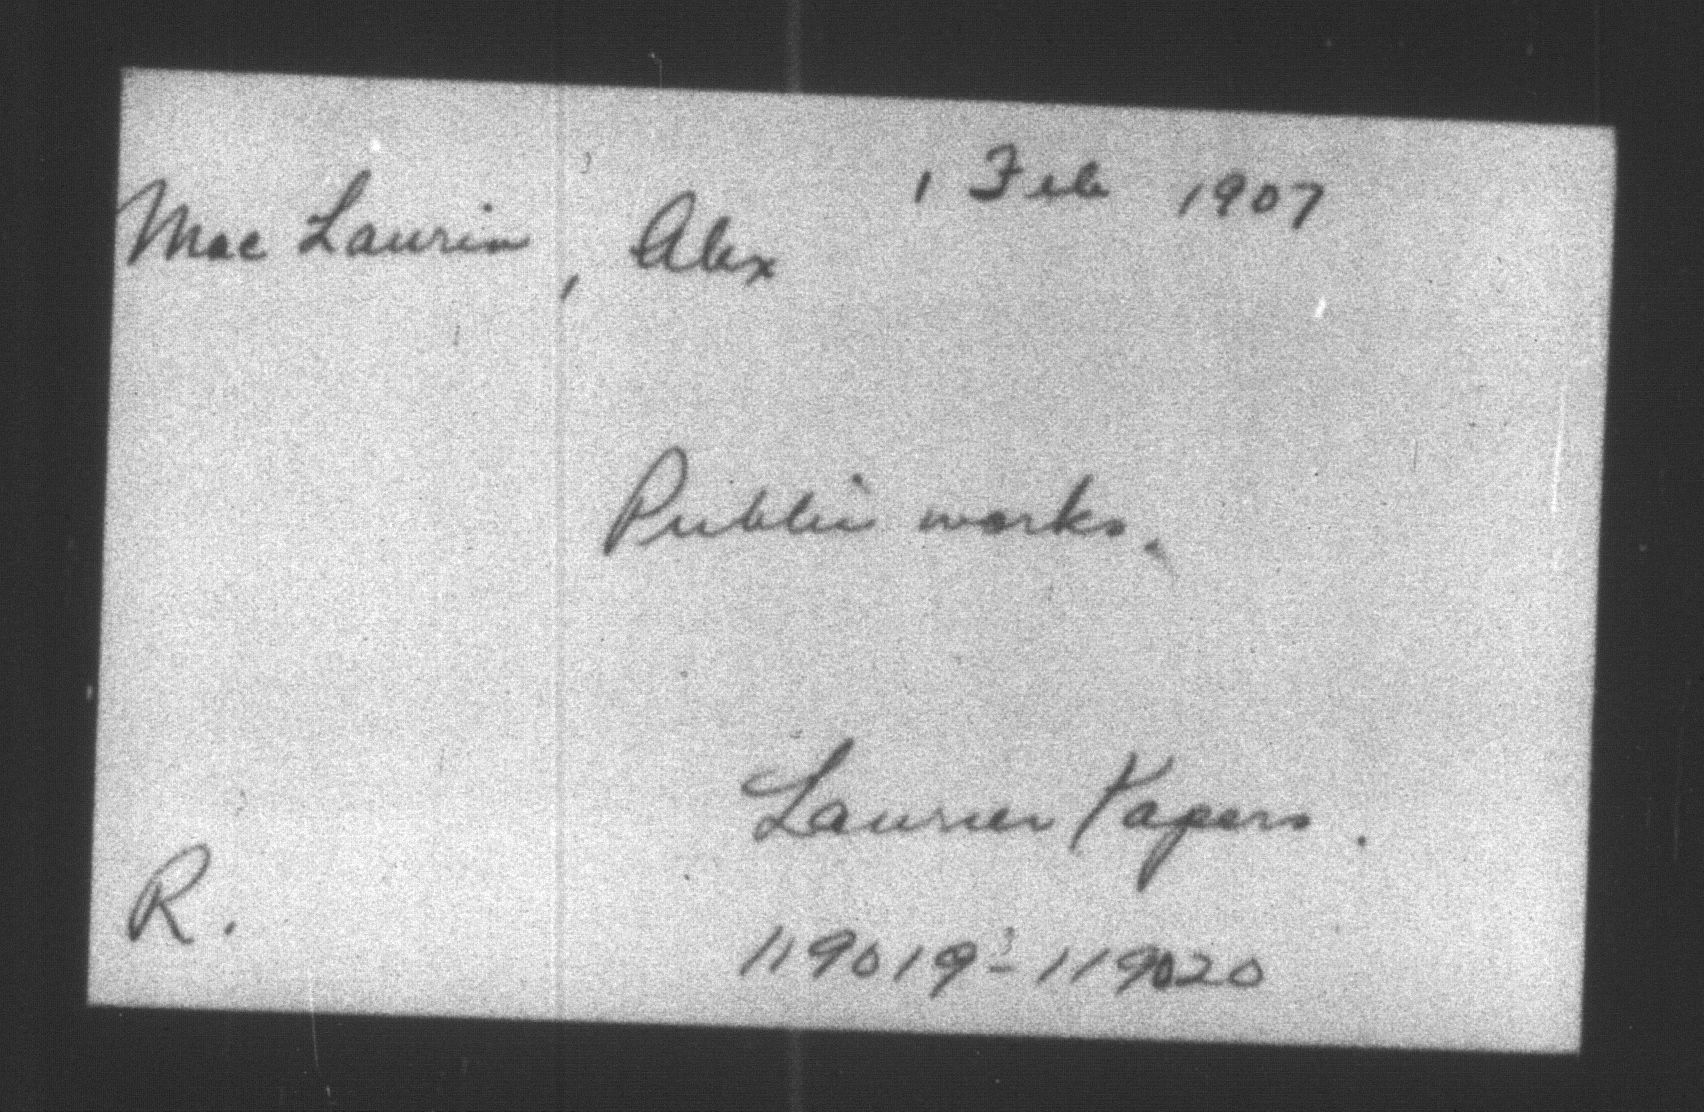 1 Feb 1907
Mac Laurin, Alex
Public works.
Laurier Papers.
R.
119019-119020